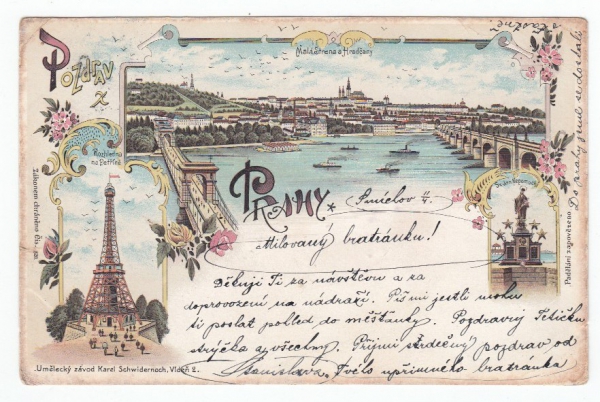 Pozdrav
z
Prahy
Malá Strana a Hradčany
Rozhledna
na Petříně
Zákonem chráněno čís.
Padělání zapovězeno
Umělecký závod Karel Schwidernoch, Vídeň 2.
Smíchov
Milovaný bratránku!
Děkuji Ti za návštěvu a za
doprovození na nádraží. Piš mi jestli mohu
ti poslat pohled do měšťanky. Pozdravuj Tetičku
strýčka a všechny. Přijmi srdečný pozdrav od
Stanislava. Tvého upřimného bratránka
Do Prahy jsme se dostali